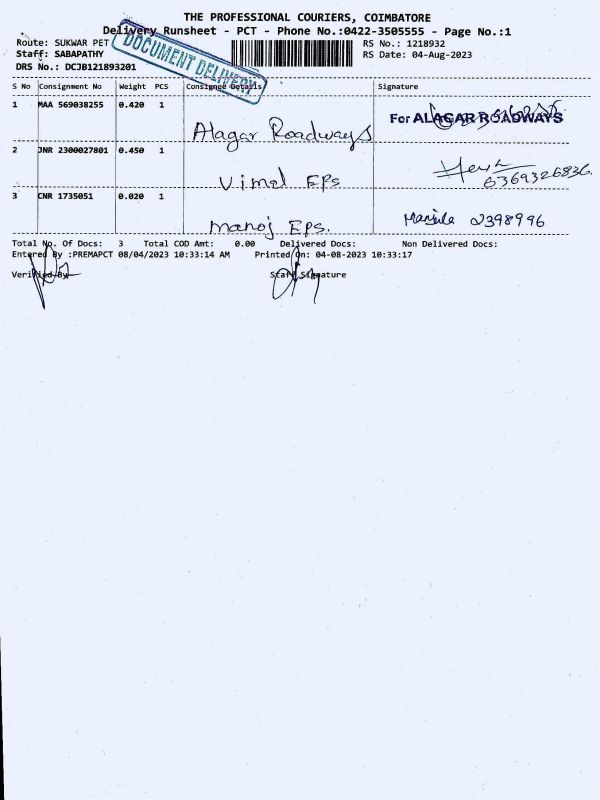 THE PROFESSIONAL COURIERS, COIMBATORE
Delivery Runsheet - PCT - Phone No.:0422-3505555 - Page No.:1
Route: SUKWAR PET
RS No.: 1218932
Staff: SABAPATHY
RS Date: 04-Aug-2023
DRS No.: DCJB121893201
DOCUMENT DELIVERY
S No Consignment No Weight PCS Consignee Details Signature
1 MAA 569038255 0.420 1
Alagar Roadways
For ALAGAR ROADWAYS
2 JNR 2300027801 0.450 1
Vimal EPS
6369326836.
3 CNR 1735051 0.020 1
Manoj EPS.
Manjula 2398996
Total No. Of Docs: 3 Total COD Amt: 0.00 Delivered Docs: Non Delivered Docs:
Entered By :PREMAPCT 08/04/2023 10:33:14 AM Printed On: 04-08-2023 10:33:17
Verified By Staff Signature